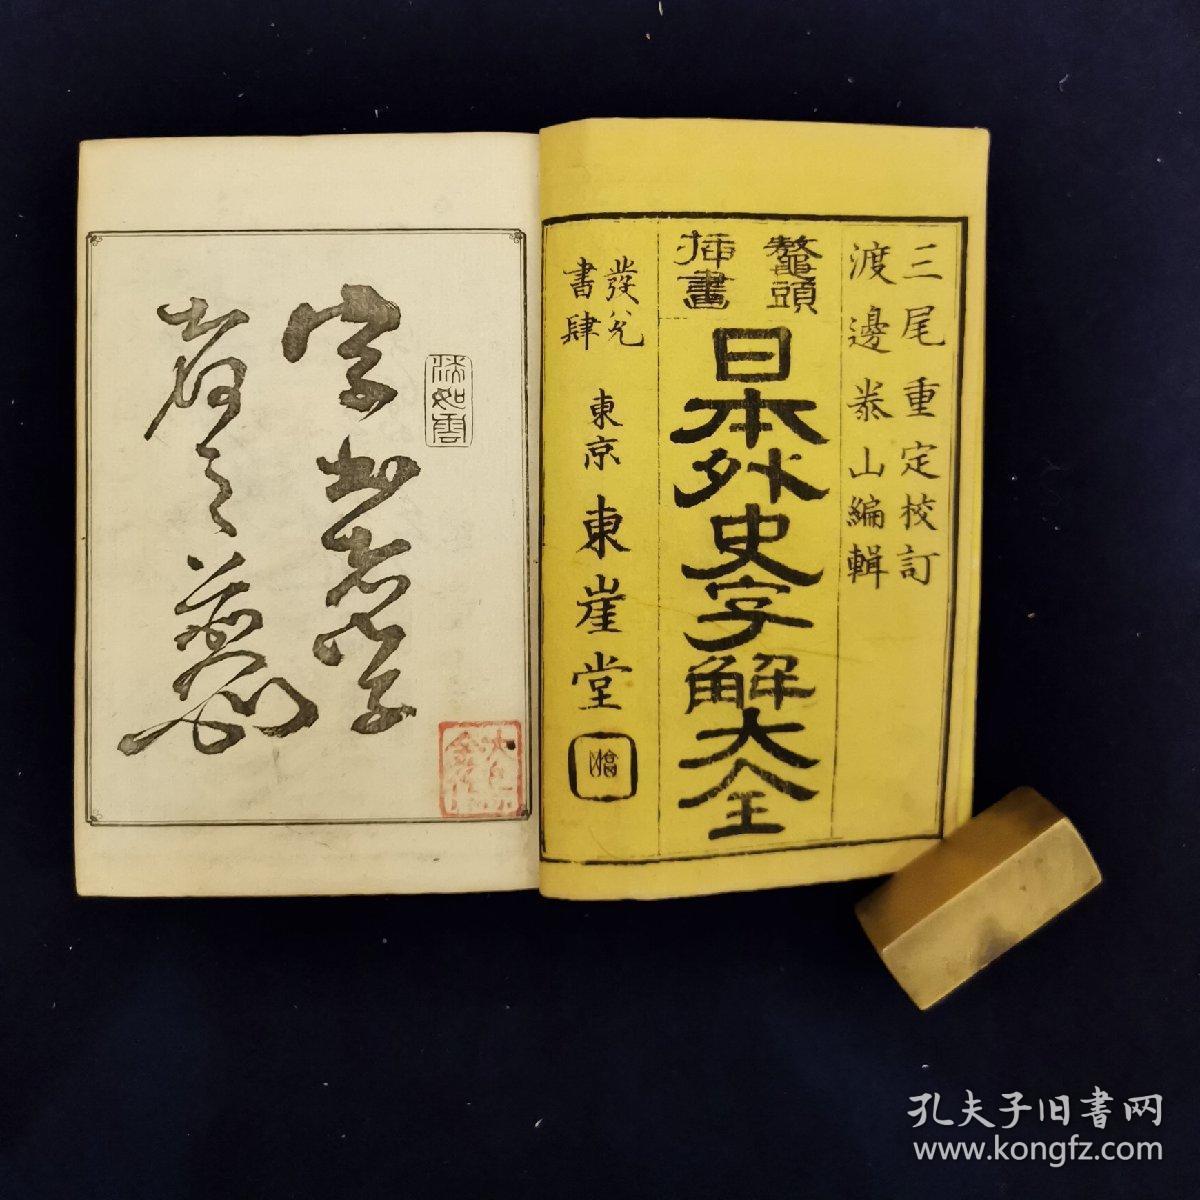 三尾重定校訂
渡邊恭山編輯
鼇頭
插畫
日本外史字解大全
發兌
書肆
東京 東崖堂
如雲
字書者學
之
孔夫子旧書网
www.kongfz.com